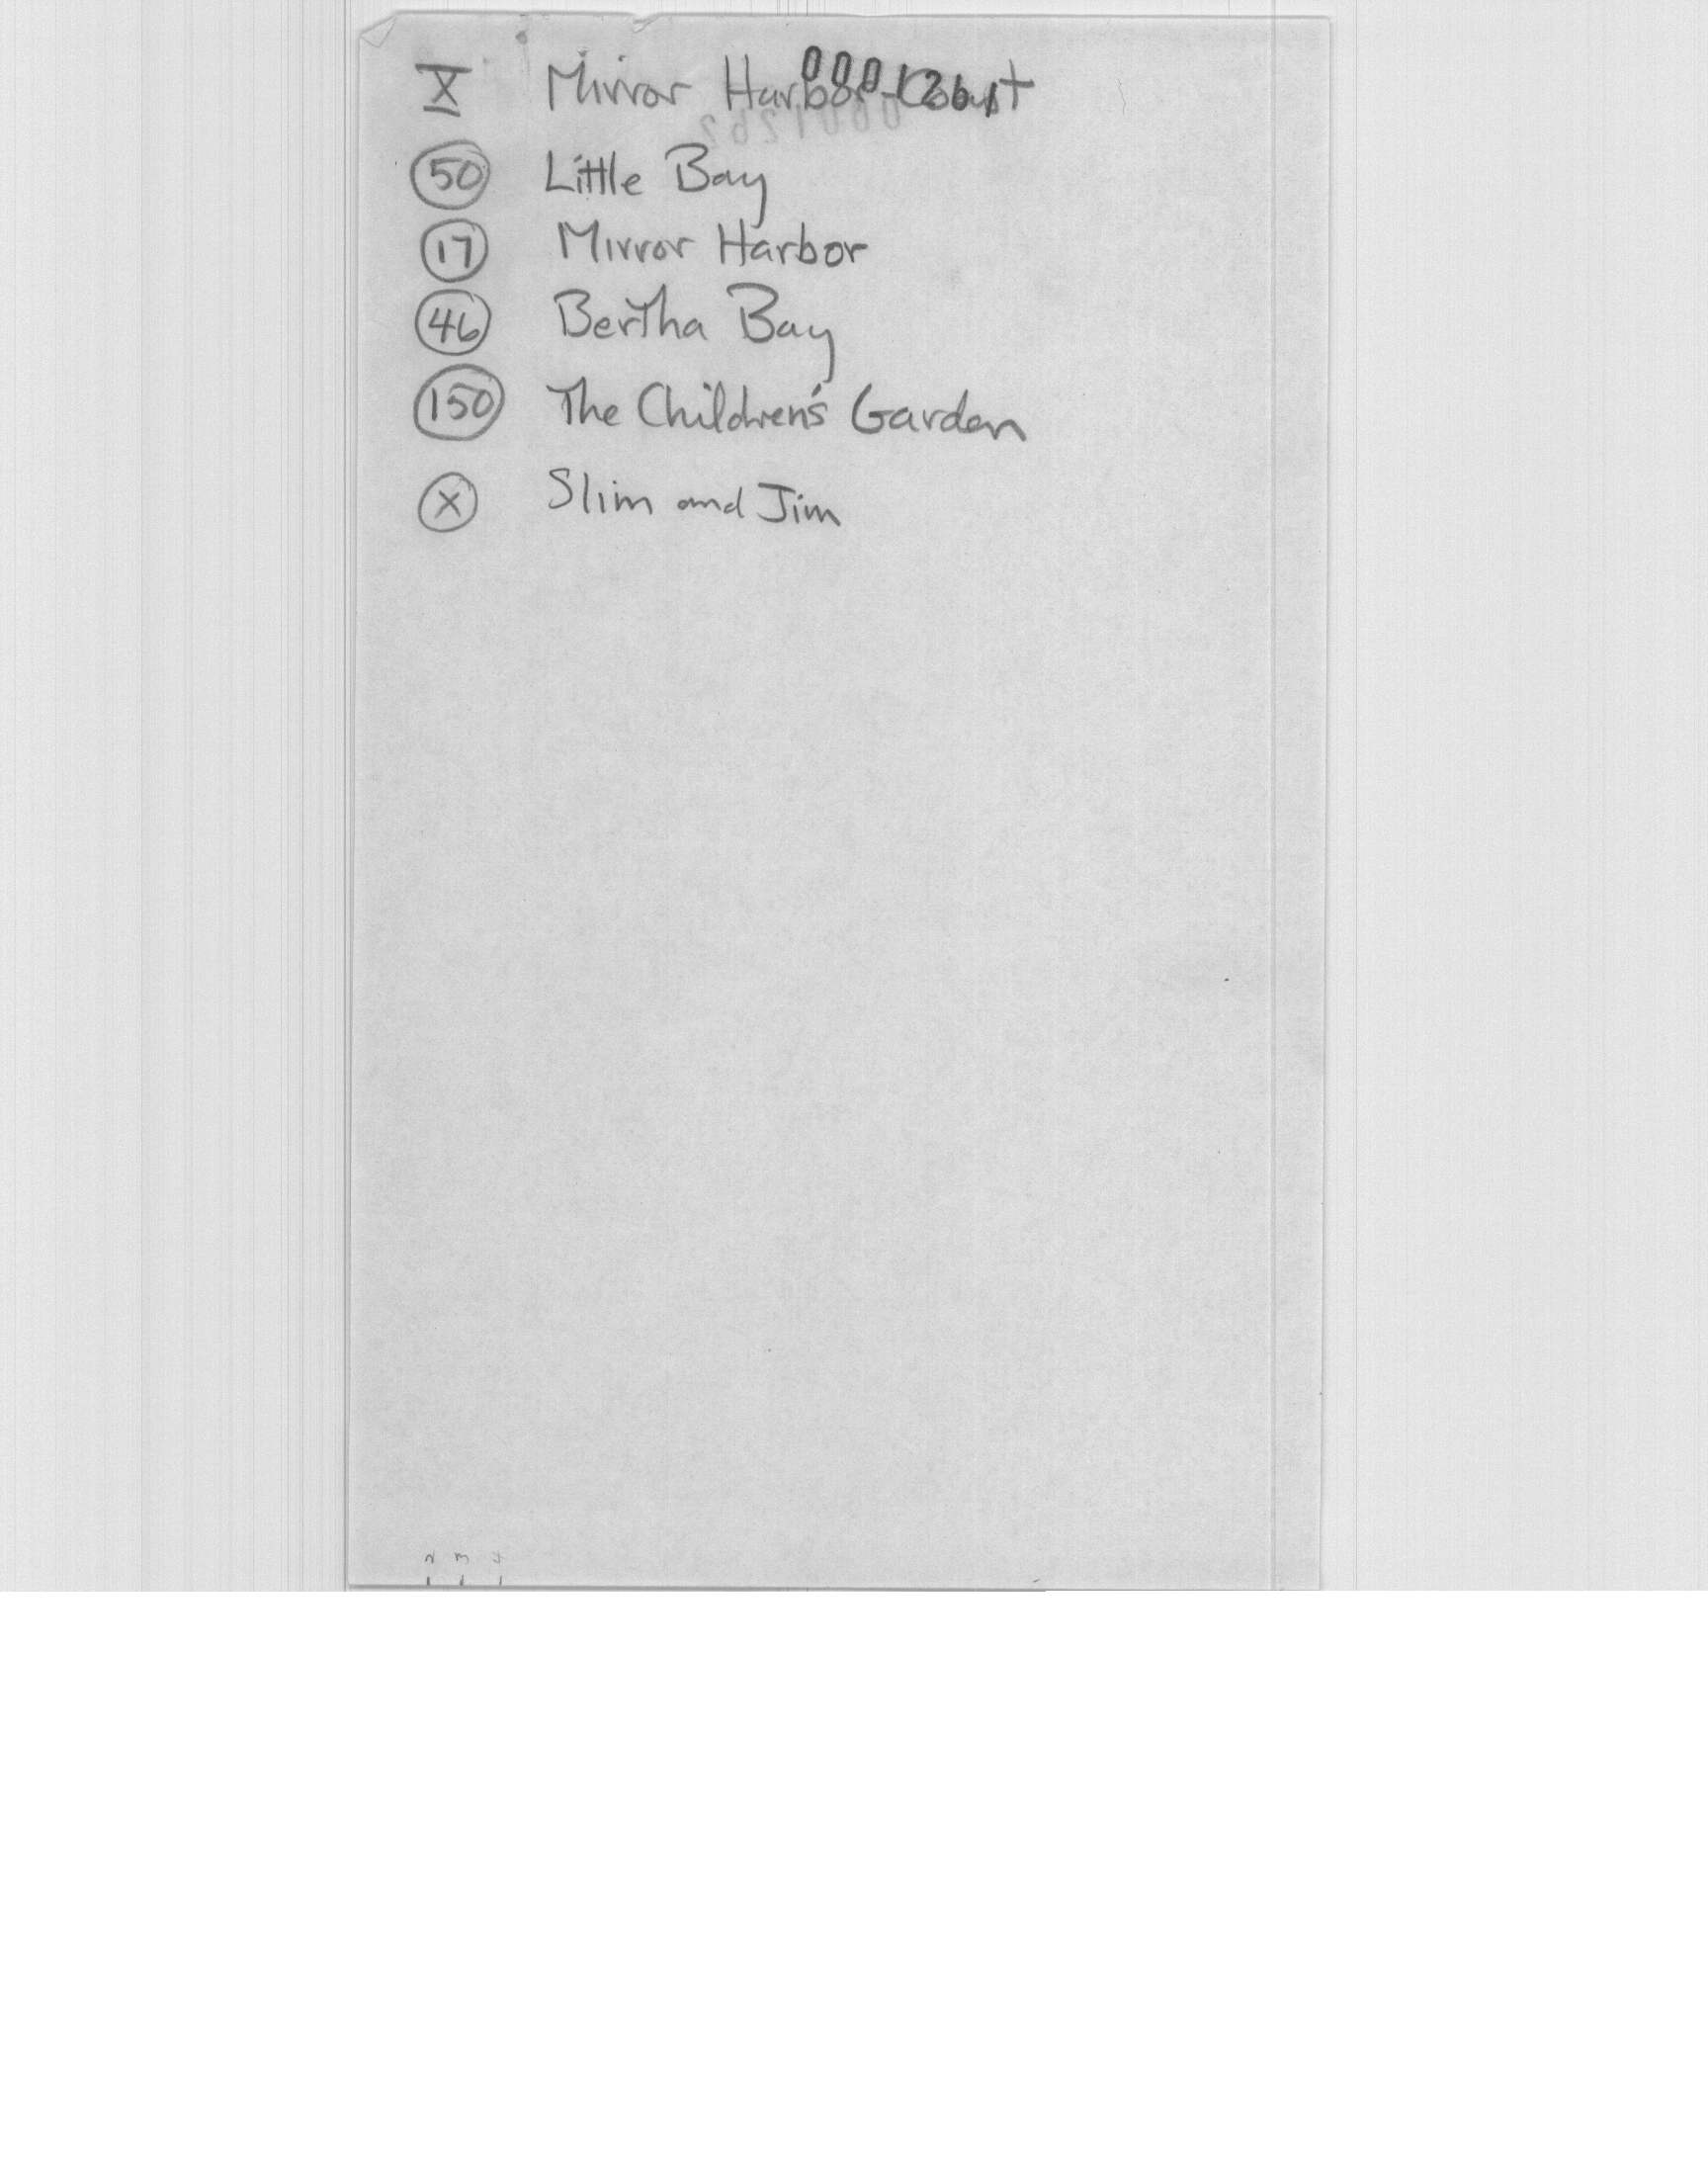 X Mirror Harbor-Coast
0001261
0001262
50 Little Bay
17 Mirror Harbor
46 Bertha Bay
150 The Children's Garden
X Slim and Jim
2 3 4